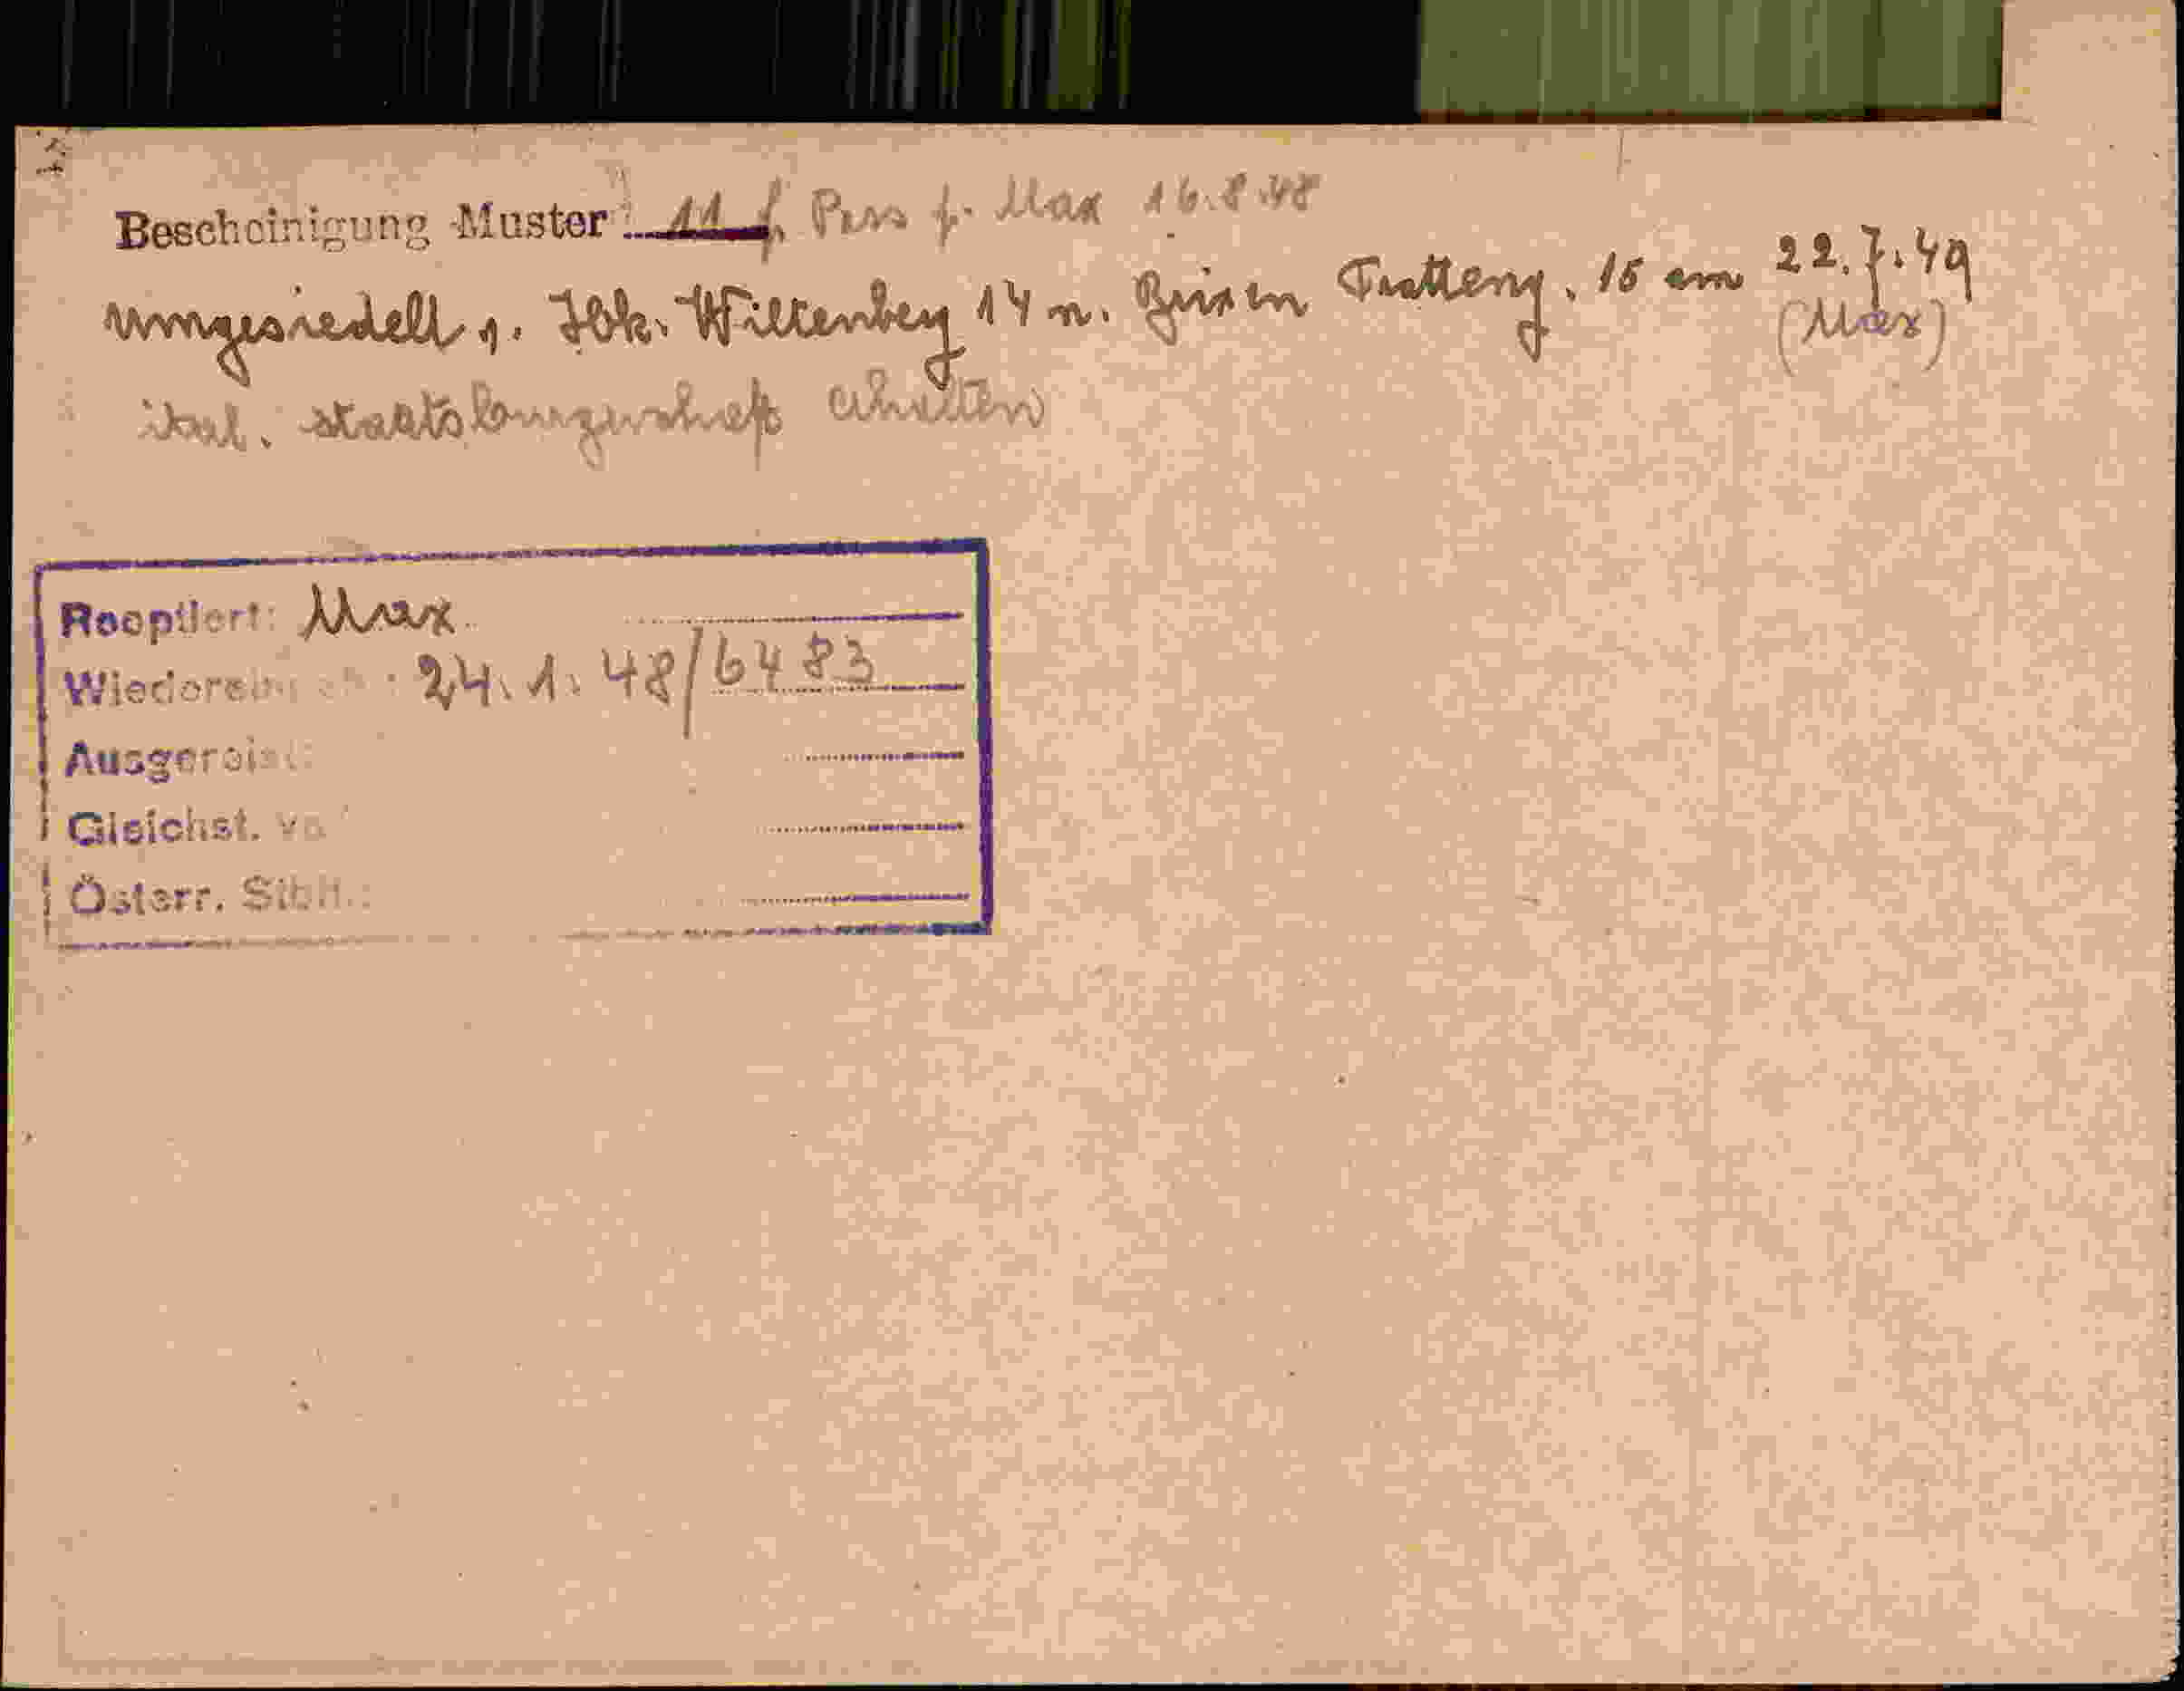 Bescheinigung Muster 11 f. Pass f. Max 16.8.48
umgesiedelt v. Ibk. Wiltenberg 14 n. Brixen Tratteng. 15 am 22.7.49
(Max)
ital. Staatsbürgerschaft erhalten
Rooptiert: Max
24.1.48/6483
Ausgereist:
Gleichst. v
Österr. Stbü.: